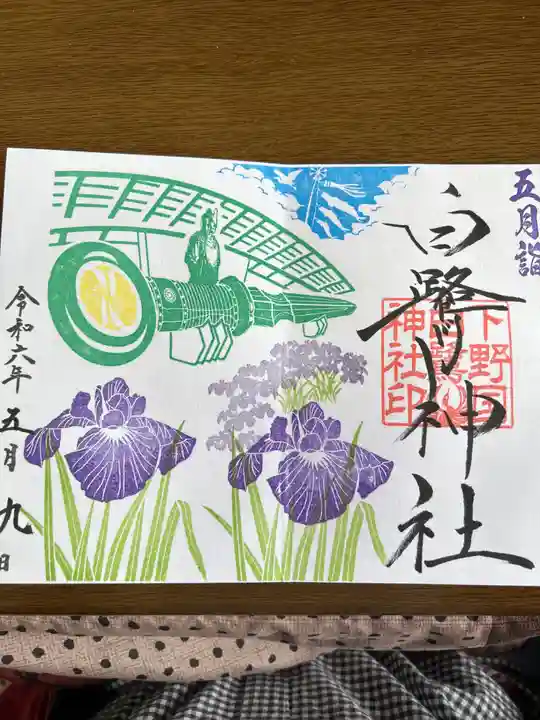 五月詣
白鷺神社
下野国
白鷺
神社印
令和六年五月九日